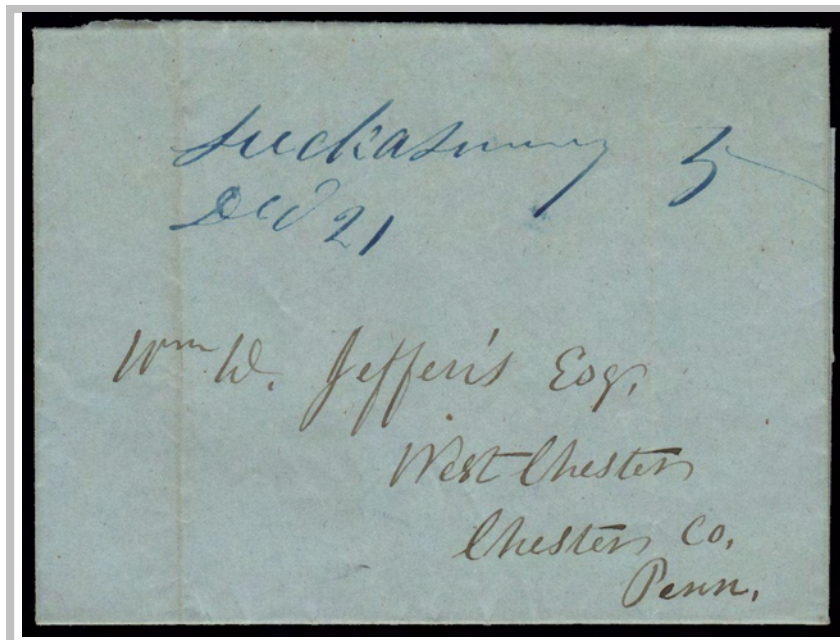 Suckasunny 5
Dec 21
Wm W. Jefferis Esq.
West Chester
Chester Co.
Penn.